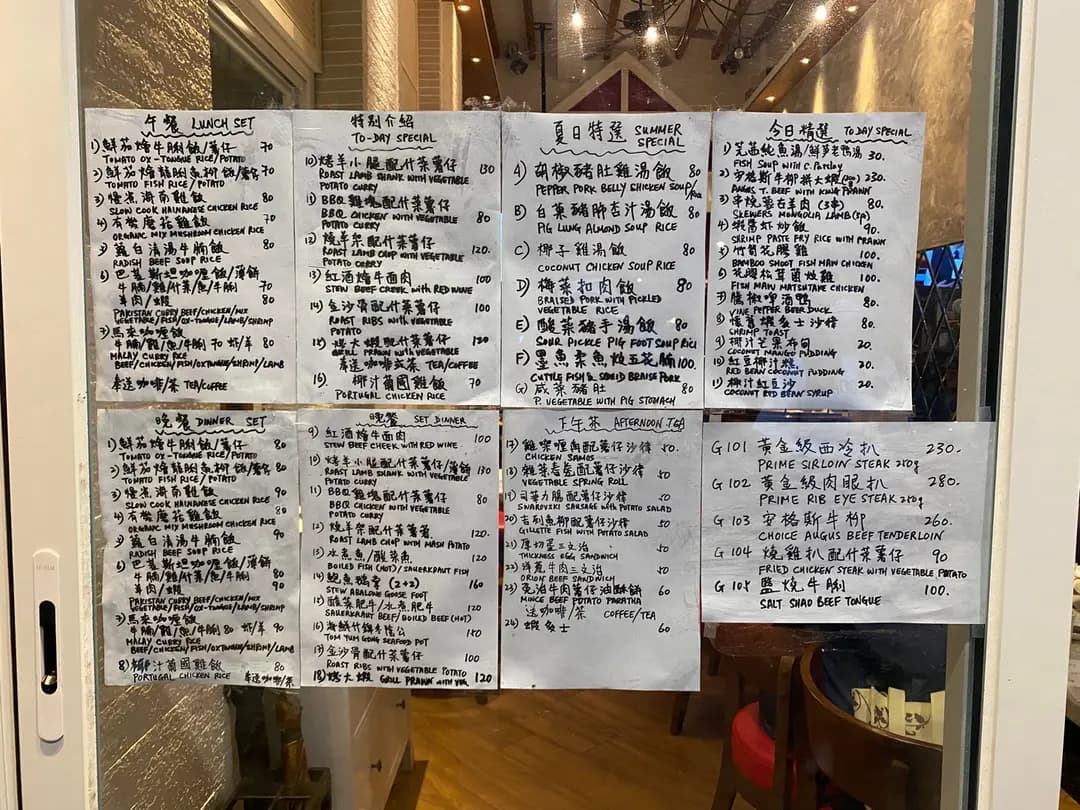 午餐 LUNCH SET
1) 鮮茄燴牛脷飯/薯仔 70
TOMATO OX-TONGUE RICE/POTATO
2) 鮮茄燴龍脷魚柳飯/薯仔 70
TOMATO FISH RICE/POTATO
3) 慢煮海南雞飯 80
SLOW COOK HAINANESE CHICKEN RICE
4) 有機蘑菇雞飯 70
ORGANIC MIX MUSHROOM CHICKEN RICE
5) 蘿白清湯牛腩飯 80
RADISH BEEF SOUP RICE
6) 巴基斯坦咖喱飯/薄餅
牛腩/雞/什菜/魚/牛脷 80
羊肉/蝦 80
PAKISTAN CURRY BEEF/CHICKEN/MIX
VEGETABLE/FISH/OX-TONGUE/SHRIMP/LAMB
7) 馬來咖喱飯
牛腩/雞/魚/牛脷 70 蝦/羊 80
MALAY CURRY RICE
BEEF/CHICKEN/FISH/OXTONGUE/SHRIMP/LAMB
奉送咖啡/茶 TEA/COFFEE
特別介紹
TO-DAY SPECIAL
10) 烤羊小腿配什菜薯仔 130
ROAST LAMB SHANK WITH VEGETABLE
POTATO CURRY
11) BBQ 雞塊配什菜薯仔
BBQ CHICKEN WITH VEGETABLE 80
POTATO CURRY
12) 燒羊架配什菜薯仔
ROAST LAMB CHOP WITH VEGETABLE 120.
POTATO CURRY
13) 紅酒燴牛面肉 100
STEW BEEF CHEEK WITH RED WINE
14) 金沙骨配什菜薯仔 100
ROAST RIBS WITH VEGETABLE
POTATO
15) 烤大蝦配什菜薯仔 120
GRILL PRAWN WITH VEGETABLE
奉送咖啡或茶 TEA/COFFEE
16) 椰汁葡國雞飯 70
PORTUGAL CHICKEN RICE
夏日特選 SUMMER
SPECIAL
A) 胡椒豬肚雞湯飯 80
PEPPER PORK BELLY CHICKEN SOUP/Rice
B) 白菜豬肺杏汁湯飯 80
PIG LUNG ALMOND SOUP RICE
C) 椰子雞湯飯 80
COCONUT CHICKEN SOUP RICE
D) 梅菜扣肉飯 80
BRAISED PORK WITH PICKLED
VEGETABLE RICE
E) 酸菜豬手湯飯 80
SOUR PICKLE PIG FOOT SOUP RICE
F) 墨魚柔魚燒五花腩 100.
CUTTLE FISH & SQUID BRAISE PORK
G) 咸菜豬肚 80
P. VEGETABLE WITH PIG STOMACH
今日精選 TODAY SPECIAL
1) 芫茜魚湯/鮮笋老鴨湯 30.
FISH SOUP WITH C. Parsley
2) 安格斯牛柳拼大蝦 230.
ANGUS T. BEEF WITH KING PRAWN
3) 串燒蒙古羊肉 (3串) 80.
SKEWERS MONGOLIA LAMB (3P)
4) 蝦醬蝦炒飯 90.
SHRIMP PASTE FRY RICE WITH PRAWN
5) 竹笋花膠雞 100.
BAMBOO SHOOT FISH MAW CHICKEN
6) 花膠松茸菌燉雞 100.
FISH MAW MATSUTAKE CHICKEN
7) 藤椒啤酒鴨 80.
VINE PEPPER BEER DUCK
8) 懷舊蝦多士沙律 80.
SHRIMP TOAST
9) 椰汁芒果布甸 20.
COCONUT MANGO PUDDING
10) 紅豆椰汁糕 20.
RED BEAN COCONUT PUDDING
11) 椰汁紅豆沙 20.
COCONUT RED BEAN SYRUP
晚餐 DINNER SET
1) 鮮茄燴牛脷飯/薯仔 80
TOMATO OX-TONGUE RICE/POTATO
2) 鮮茄燴龍脷魚柳飯/薯仔 80
TOMATO FISH RICE/POTATO
3) 慢煮海南雞飯 90
SLOW COOK HAINANESE CHICKEN RICE
4) 有機蘑菇雞飯 80
ORGANIC MIX MUSHROOM CHICKEN RICE
5) 蘿白清湯牛腩飯 90
RADISH BEEF SOUP RICE
6) 巴基斯坦咖喱飯/薄餅
牛腩/雞/什菜/魚/牛脷 90
羊肉/蝦 90
PAKISTAN CURRY BEEF/CHICKEN/MIX
VEGETABLE/FISH/OX-TONGUE/SHRIMP/LAMB
7) 馬來咖喱飯
牛腩/雞/魚/牛脷 80 蝦/羊 90
MALAY CURRY RICE
BEEF/CHICKEN/FISH/OXTONGUE/SHRIMP/LAMB
8) 椰汁葡國雞飯 80
PORTUGAL CHICKEN RICE 奉送咖啡/茶
晚餐 SET DINNER
9) 紅酒燴牛面肉 100
STEW BEEF CHEEK WITH RED WINE
10) 烤羊小腿配什菜薯仔/薄餅 130
ROAST LAMB SHANK WITH VEGETABLE
POTATO CURRY
11) BBQ 雞塊配什菜薯仔 80
BBQ CHICKEN WITH VEGETABLE
POTATO CURRY
12) 燒羊架配什菜薯蓉 120.
ROAST LAMB CHOP WITH MASH POTATO
13) 水煮魚/酸菜魚 120
BOILED FISH (HOT)/SAUERKRAUT FISH
14) 鮑魚鵝掌 (2+2) 160
STEW ABALONE GOOSE FOOT
15) 酸菜肥牛/水煮肥牛 120
SAUERKRAUT BEEF/BOILED BEEF (HOT)
16) 海鮮什錦冬陰公 150
TOM YUM GONG SEAFOOD POT
17) 金沙骨配什菜薯仔 100
ROAST RIBS WITH VEGETABLE POTATO
18) 烤大蝦 GRILL PRAWN WITH VEG 120
下午茶 AFTERNOON TEA
17) 雞咖喱角配薯仔沙律 50
CHICKEN SAMOS
18) 雜菜春卷配薯仔沙律 50
VEGETABLE SPRING ROLL
19) 司華力腸配薯仔沙律 50
SWAROVSKI SAUSAGE WITH POTATO SALAD
20) 吉列魚柳配薯仔沙律 50
GILLETTE FISH WITH POTATO SALAD
21) 厚切蛋三文治 50
THICKNESS EGG SANDWICH
22) 洋蔥牛肉三文治 50
ORION BEEF SANDWICH
23) 免治牛肉薯仔油酥餅 50
MINCE BEEF POTATO PARATHA
送咖啡/茶 COFFEE/TEA
24) 蝦多士 60
G101 黃金級西冷扒 230.
PRIME SIRLOIN STEAK 250g
G102 黃金級肉眼扒 280.
PRIME RIB EYE STEAK 250g
G103 安格斯牛柳 260.
CHOICE AUGUS BEEF TENDERLOIN
G104 燒雞扒配什菜薯仔 90
FRIED CHICKEN STEAK WITH VEGETABLE POTATO
G105 鹽燒牛脷 100.
SALT SHAO BEEF TONGUE